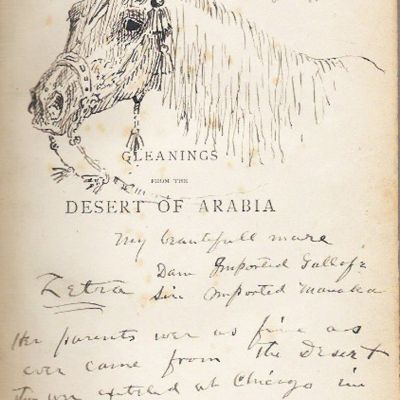 GLEANINGS
FROM THE
DESERT OF ARABIA
My beautifull mare
Dam Imported Galfia
Zetra Sire Imported Manaka
Her parents wer as fine as
ever came from The Desert
at Chicago in